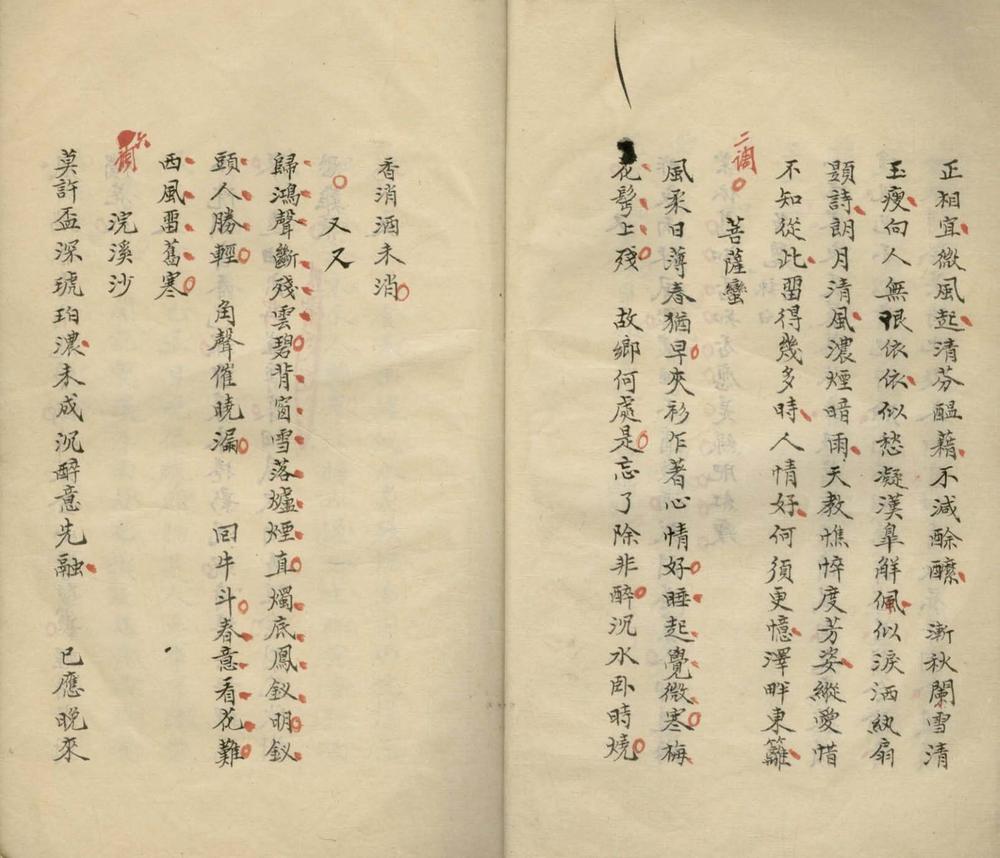 正相宜微風起清芬醞藉不減酴醾　漸秋闌雪清
玉瘦向人無限依依似愁凝漢皐解佩似淚洒紈扇
題詩朗月清風濃煙暗雨天教憔悴度芳姿縱愛惜
不知從此畱得幾多時人情好何須更憶澤畔東籬
二調
菩薩蠻
風柔日薄春猶早夾衫乍著心情好睡起覺微寒梅
花鬢上殘　故鄉何處是忘了除非醉沉水卧時燒
香消酒未消
又又
歸鴻聲斷殘雲碧背窗雪落爐煙直燭底鳳釵明釵
頭人勝輕　角聲催曉漏　回牛斗春意看花難
西風畱舊寒
六調
浣溪沙
莫許盃深琥珀濃未成沉醉意先融　已應晚來